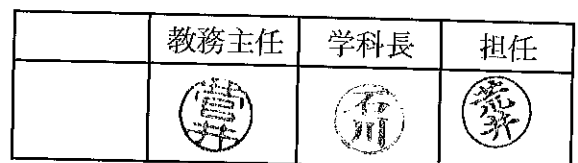 教務主任 学科長 担任
菅井 石川 荒井